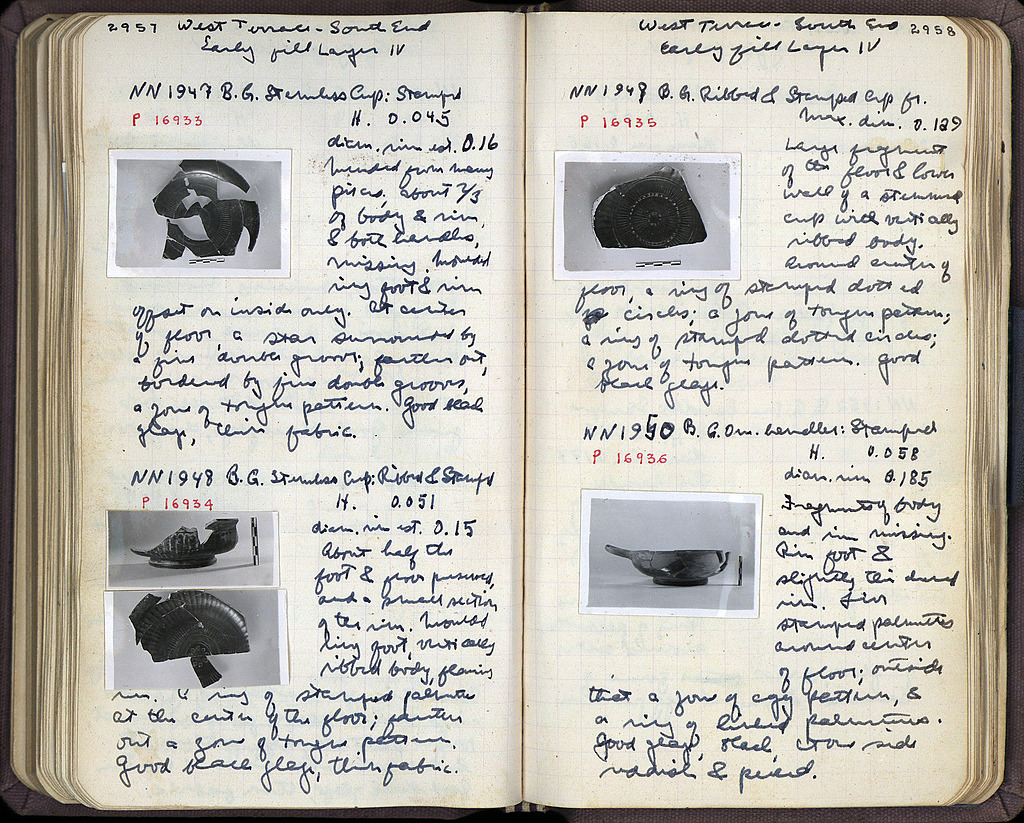 2957 West Terrace - South End
Early fill Layer IV
NN 1947 B.G. Stemless Cup: Stamped
P 16933
H. 0.045
diam. rim est. 0.16
Mended from many
pieces, about 2/3
of body & rim,
& both handles,
missing. Moulded
ring foot & rim
offset on inside only. At center
of floor, a star surrounded by
a fine double groove; farther out,
bordered by fine double grooves,
a zone of tongue pattern. Good black
glaze, thin fabric.
NN 1948 B.G. Stemless Cup: Ribbed & Stamped
P 16934
H. 0.051
diam. rim est. 0.15
About half the
foot & floor preserved,
and a small section
of the rim. Moulded
ring foot, vertically
ribbed body, flaring
rim. A ring of stamped palmettes
at the center of the floor; farther
out a zone of tongue pattern.
Good black glaze, thin fabric.
West Terrace - South End 2958
Early fill Layer IV
NN 1949 B.G. Ribbed & Stamped Cup fr.
P 16935
Max. dim. 0.129
Large fragment
of the floor & lower
wall of a stemmed
cup with vertically
ribbed body.
Around center of
floor, a ring of stamped dotted
circles; a zone of tongue pattern;
a ring of stamped dotted circles;
a zone of tongue pattern. Good
black glaze.
NN 1950 B.G. One-handler: Stamped
P 16936
H. 0.058
diam. rim 0.185
Fragments of body
and rim missing.
Rim foot &
slightly thickened
rim. Five
stamped palmettes
around center
of floor; outside
that a zone of egg pattern, &
a ring of linked palmettes.
Good glaze, black, & one side
reddish & peeled.